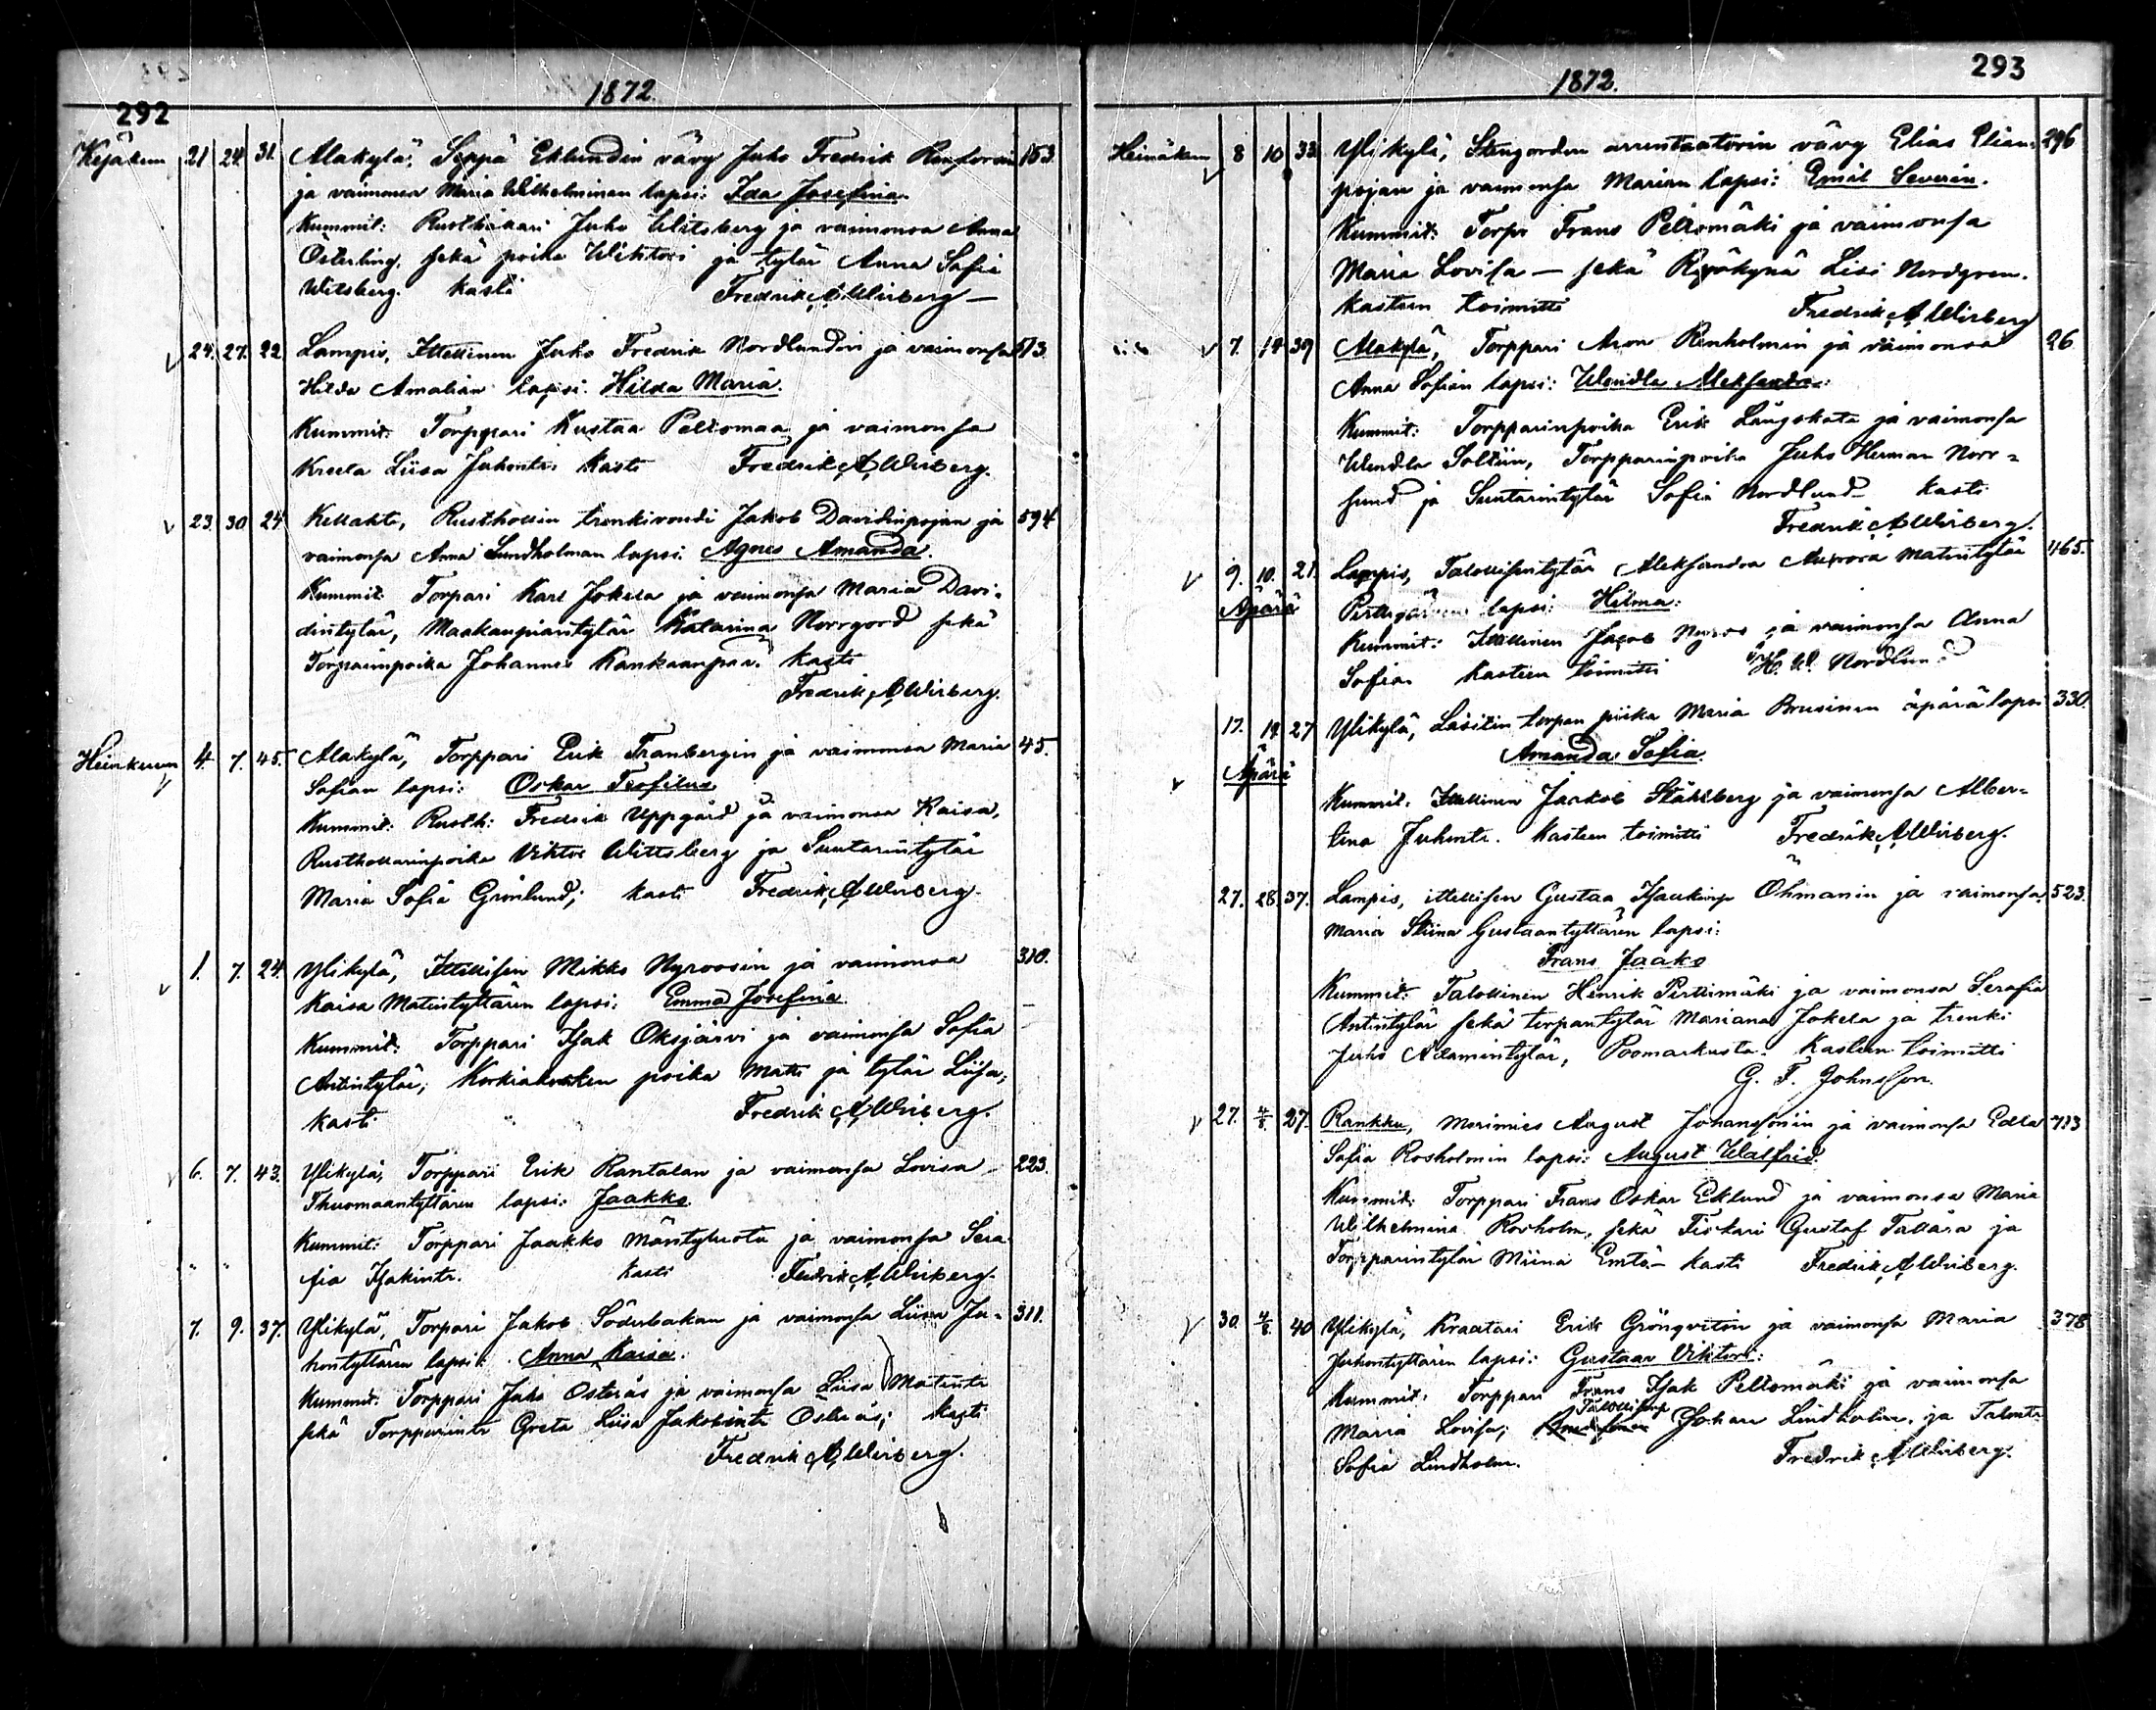 292
1872.
Kesäkuu 21 24 31. Alakylä, Seppä Eklundin vävy Juho Fredrik Renforsin 153
ja vaimonsa Maria Wilhelminan lapsi: Ida Josefina.
Kummit: Rusthollari Juho Witsberg ja vaimonsa Anna
Österling, sekä poika Wihtori ja tytär Anna Sofia
Witsberg. kasti Fredrik A Wirberg —
24. 27. 22 Lampis, Itellinen Juho Fredrik Nordlundin ja vaimonsa 513
Hilda Amalian lapsi: Hilda Maria.
Kummit: Torppari Kustaa Peltomaa ja vaimonsa
Kreeta Liisa Juhontr. kasti Fredrik A Wirberg.
23. 30 24 Kellahti, Rusthollin trenkivouti Jakob Davidinpojan ja 594
vaimonsa Anna Lundholman lapsi: Agnes Amanda.
Kummit: Torpari Karl Jokela ja vaimonsa Maria Davi-
dintytär, Maakaupiantytär Katarina Norrgord sekä
Torparinpoika Johannes Kankaanpää. kasti
Fredrik A Wirberg.
4. 7. 45. Alakylä, Torppari Erik Tranbergin ja vaimonsa Maria 45.
Sofian lapsi: Oskar Teofilus
Kummit: Rusth: Fredrik Uppgård ja vaimonsa Kaisa,
Rusthollarinpoika Viktor Wittsberg ja Suutarintytär
Maria Sofia Grönlund; kasti Fredrik A Wirberg.
1. 7. 24. Ylikylä, Itellisen Mikko Nyroosin ja vaimonsa 310.
Kaisa Matintyttären lapsi: Emma Josefina
Kummit: Torppari Isak Oksjärvi ja vaimonsa Sofia
Antintytär, poika Matti ja tytär Liisa;
kasti Fredrik A Wirberg.
6. 7. 43. Ylikylä, Torppari Erik Rantalan ja vaimonsa Lovisa 223.
Thuomaantyttären lapsi: Jaakko.
Kummit: Torppari Jaakko Mäntyluoto ja vaimonsa Sera-
fia Isakintr. kasti Fredrik A Wirberg.
7. 9. 37. Ylikylä, Torpari Jakob Söderbakan ja vaimonsa Liisa Ju- 311.
hontyttären lapsi: Anna Kaisa.
Kummit: Torppari Juho Österås ja vaimonsa Liisa Matintr
sekä Torpparintr Greta Liisa Jakobintr Österås; kasti
Fredrik A Wirberg.
293
1872.
Heinäkuu 8 10 33 Ylikylä, Stengorden arrentaatorin vävy Elias Elian- 296
pojan ja vaimonsa Marian lapsi: Emil Severin.
Kummit: Torp. Frans Peltomäki ja vaimonsa
Maria Lovisa — sekä Liisi Nordgren.
kasteen toimitti Fredrik A Wirberg
7. 14 39 Alakylä, Torppari Aron Renholmin ja vaimonsa 26
Anna Sofian lapsi: Wendla Aleksandra.
Kummit: Torpparinpoika Erik Långskata ja vaimonsa
Wendla Soltin, Torpparinpoika Juho Herman Norr-
sund ja Suutarintytär Sofia Nordlund kasti
Fredrik A Wirberg.
9. 10. 21 Lampis, Talollisentytär Aleksandra Aurora Matintytär 465.
Äpärä lapsi: Hilma:
Kummit: Itellinen Jacob Nyroos ja vaimonsa Anna
Sofia. kasteen toimitti H. W. Nordlund
17. 19. 27 Ylikylä, torpan piika Maria Brusinin äpärä lapsi 330.
Äpärä Amanda Sofia.
Kummit: Itellinen Jaakob Ståhlberg ja vaimonsa Alber-
tina Juhontr. kasteen toimitti Fredrik A Wirberg.
27. 28. 37. Lampis, itellisen Gustaa Isaakinp Öhmanin ja vaimonsa 523.
Maria Stiina Gustaantyttären lapsi:
Frans Jaako
Kummit: Talollinen Henrik Perttimäki ja vaimonsa Serafia
Antintytär sekä torpantytär Mariana Jokela ja trenki
Juho Adamintytär, Poomarkusta. kasteen toimitti
G. F. Johnsson.
27. 4/8. 27. Rankku, Merimies August Johanssonin ja vaimonsa Edla 713
Sofia Rosholmin lapsi: August Walfrid.
Kummit: Torppari Frans Oskar Eklund ja vaimonsa Maria
Wilhelmina Rosholm, sekä Fiskari Gustaf Tallåra ja
Torpparintytär Miina Emtö — kasti Fredrik A Wirberg.
30. 4/8. 40 Ylikylä, Kraatari Erik Grönqvistin ja vaimonsa Maria 378
Juhontyttären lapsi: Gustaav Viktori:
Kummit: Torppari Frans Isak Peltomäki ja vaimonsa
Maria Lovisa; Talollisenp Johan Lindholm, ja Talontr
Sofia Lindholm. Fredrik A Wirberg.